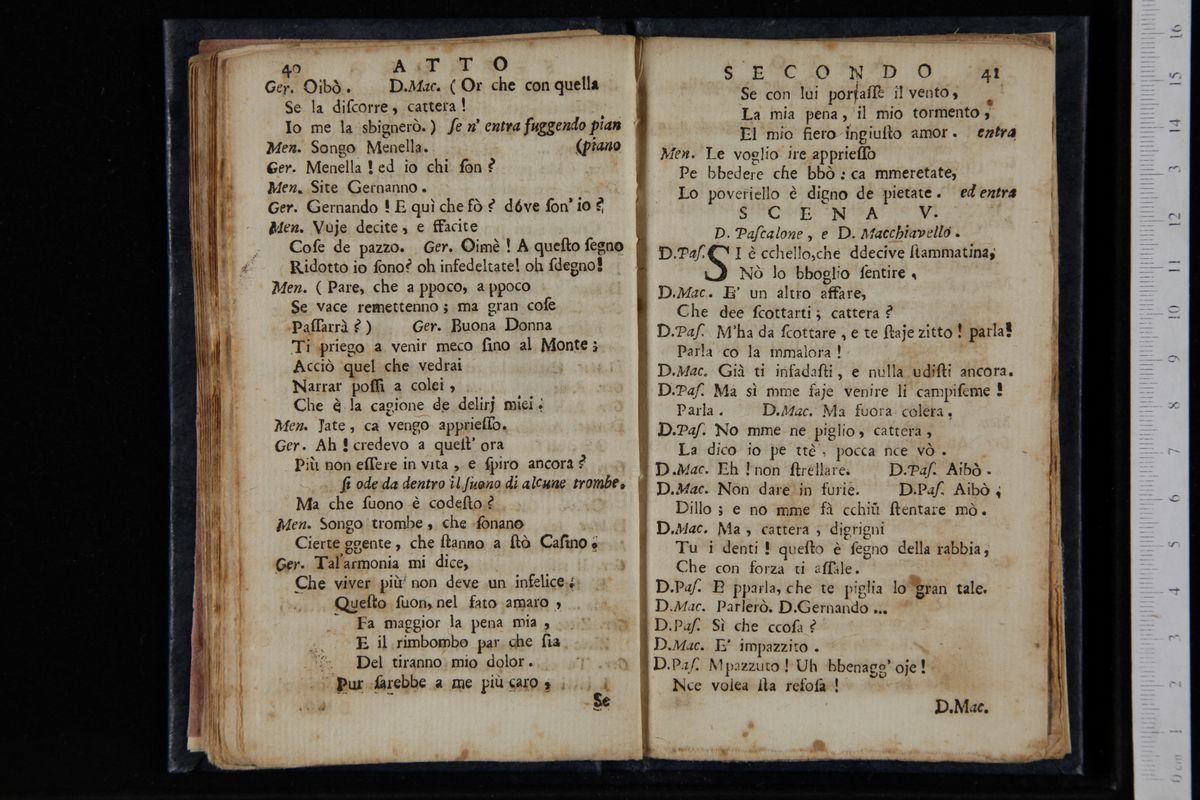 40 ATTO
Ger. Oibò. D.Mac. (Or che con quella
Se la diſcorre, cattera!
Io me la sbignerò.) ſe n' entra fuggendo pian
Men. Songo Menella. (piano
Ger. Menella! ed io chi ſon?
Men. Site Gernanno.
Ger. Gernando! E quì che fò? dóve ſon' io?
Men. Vuje decite, e ffacite
Coſe de pazzo. Ger. Oimè! A queſto ſegno
Ridotto io ſono? oh infedeltate! oh ſdegno!
Men. (Pare, che a ppoco, a ppoco
Se vace remettenno; ma gran coſe
Paſſarrà?) Ger. Buona Donna
Ti priego a venir meco ſino al Monte;
Acciò quel che vedrai
Narrar poſſi a colei,
Che è la cagione de delirj miei.
Men. Jate, ca vengo apprieſſo.
Ger. Ah! credevo a queſt' ora
Più non eſſere in vita, e ſpiro ancora?
ſi ode da dentro il ſuono di alcune trombe.
Ma che ſuono è codeſto?
Men. Songo trombe, che ſonano
Cierte ggente, che ſtanno a ſtò Caſino.
Ger. Tal'armonia mi dice,
Che viver più non deve un infelice.
Queſto ſuon, nel fato amaro,
Fa maggior la pena mia,
E il rimbombo par che ſia
Del tiranno mio dolor.
Pur ſarebbe a me più caro,
Se
SECONDO 41
Se con lui portaſſe il vento,
La mia pena, il mio tormento,
El mio fiero ingiuſto amor. entra
Men. Le voglio ire apprieſſo
Pe bbedere che bbò: ca mmeretate,
Lo poveriello è digno de pietate. ed entra
SCENA V.
D. Paſcalone, e D. Macchiavello.
D.Paſ. SI è cchello, che ddecive ſtammatina,
Nò lo bboglio ſentire.
D.Mac. E' un altro affare,
Che dee ſcottarti; cattera?
D.Paſ. M'ha da ſcottare, e te ſtaje zitto! parla!
Parla co la mmalora!
D.Mac. Già ti infadaſti, e nulla udiſti ancora.
D.Paſ. Ma sì mme faje venire li campiſeme!
Parla. D.Mac. Ma fuora colera.
D.Paſ. No mme ne piglio, cattera,
La dico io pe ttè, pocca nce vò.
D.Mac. Eh! non ſtrellare. D.Paſ. Aibò.
D.Mac. Non dare in furie. D.Paſ. Aibò,
Dillo; e no mme fà cchiù ſtentare mò.
D.Mac. Ma, cattera, digrigni
Tu i denti! queſto è ſegno della rabbia,
Che con forza ti aſſale.
D.Paſ. E pparla, che te piglia lo gran tale.
D.Mac. Parlerò. D.Gernando ...
D.Paſ. Sì che ccoſa?
D.Mac. E' impazzito.
D.Paſ. Mpazzuto! Uh bbenagg' oje!
Nce volea ſta reſoſa!
D.Mac.